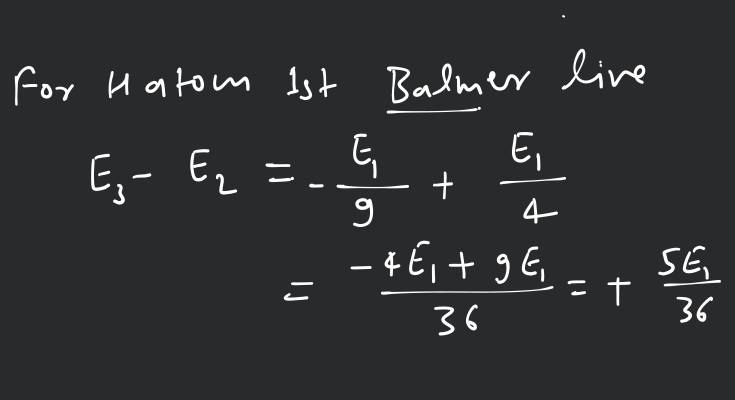 For H atom 1st Balmer line
E₃ - E₂ = - E₁/9 + E₁/4
= (-4E₁ + 9E₁)/36 = + 5E₁/36